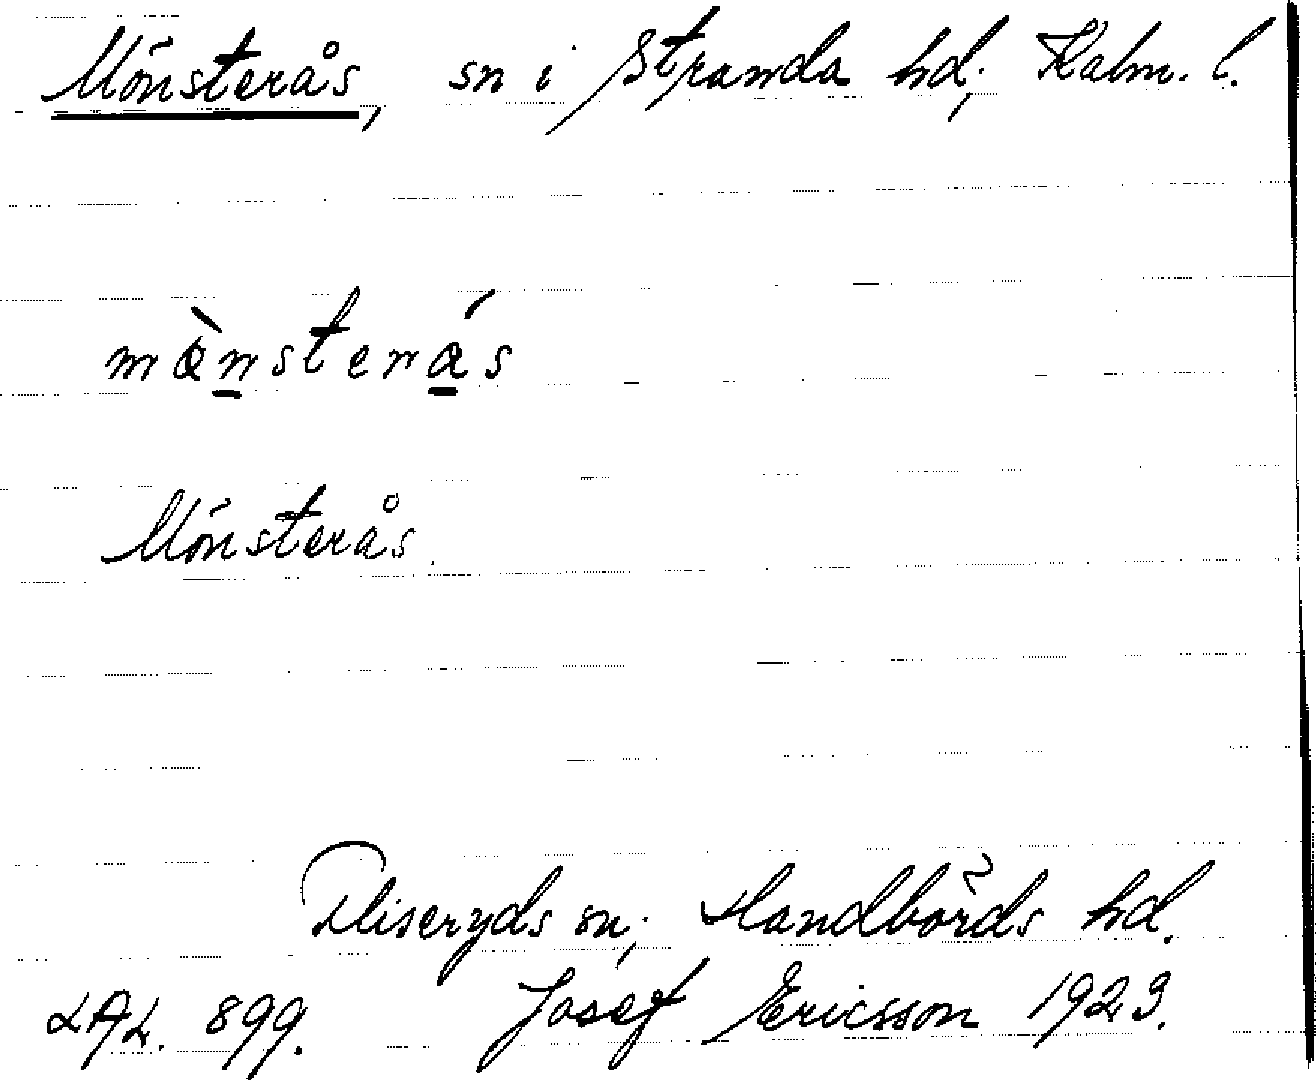 Mönsterås, sn i Stranda hd, Kalm. l.
mönsterås
Mönsterås
Fliseryds sn, Handbörds hd.
LAL. 899. Josef Ericsson 1923.